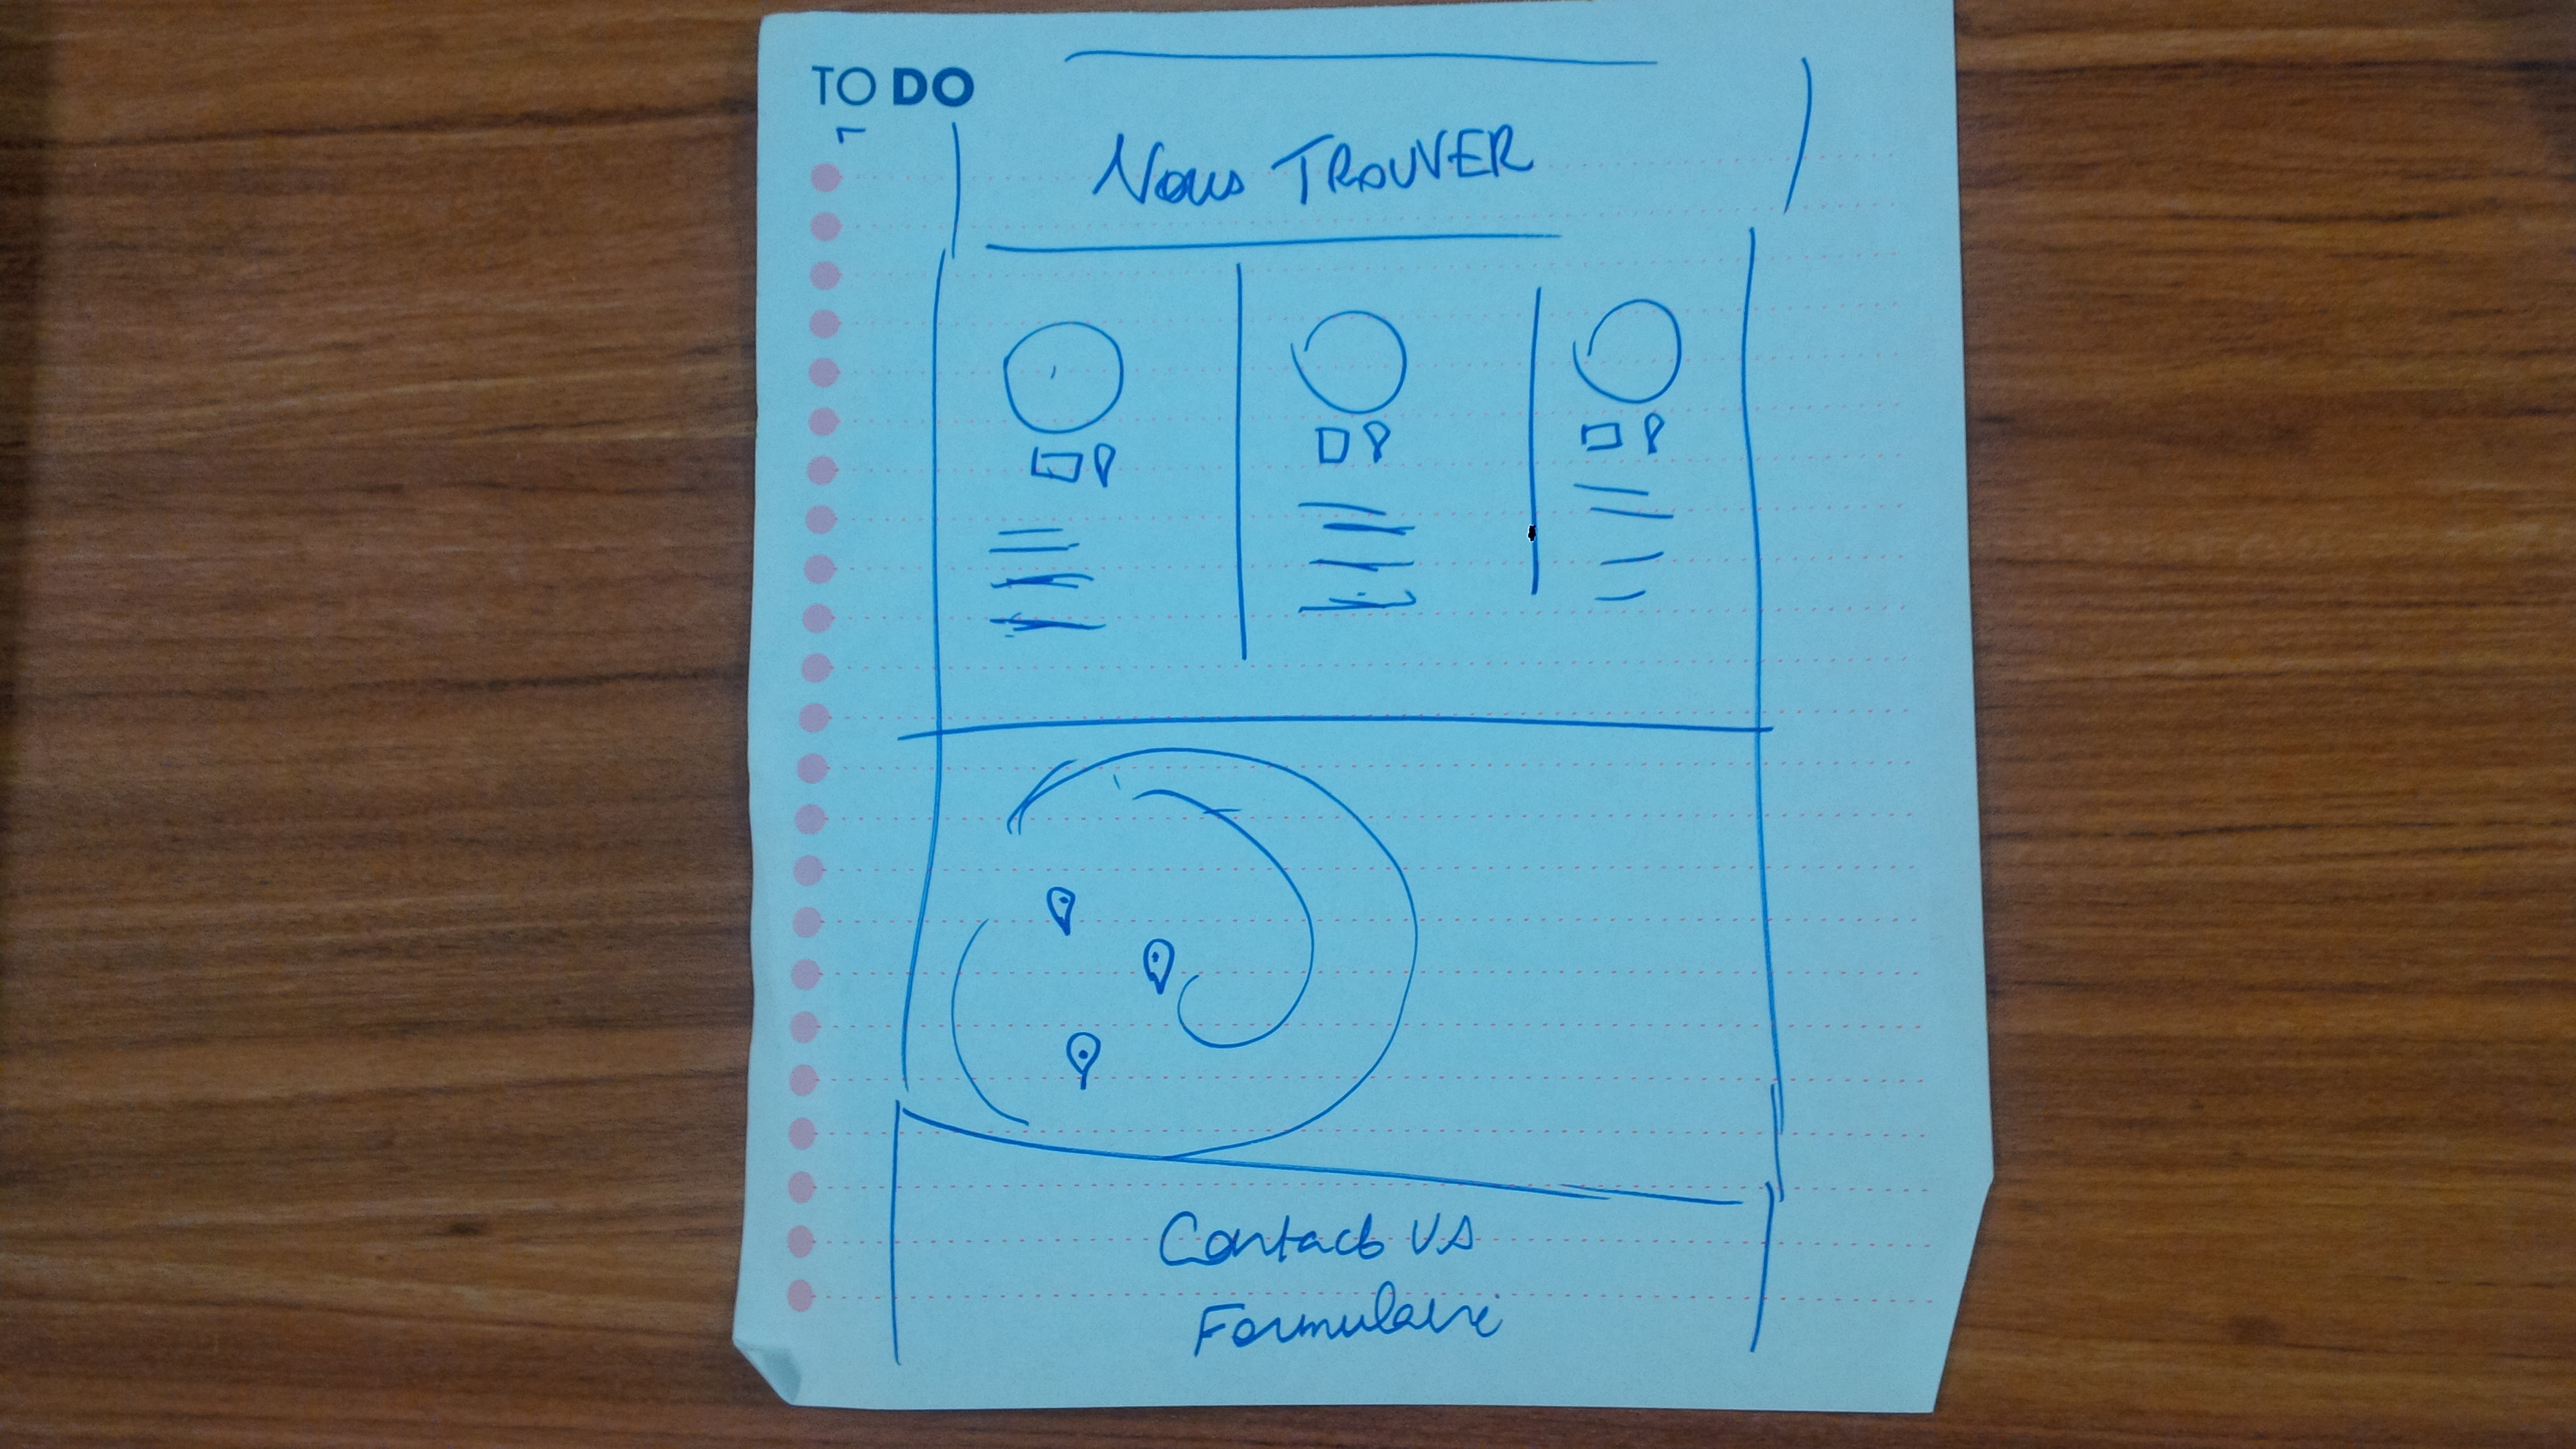 TO DO
Nous TROUVER
Contact US
Formulaire